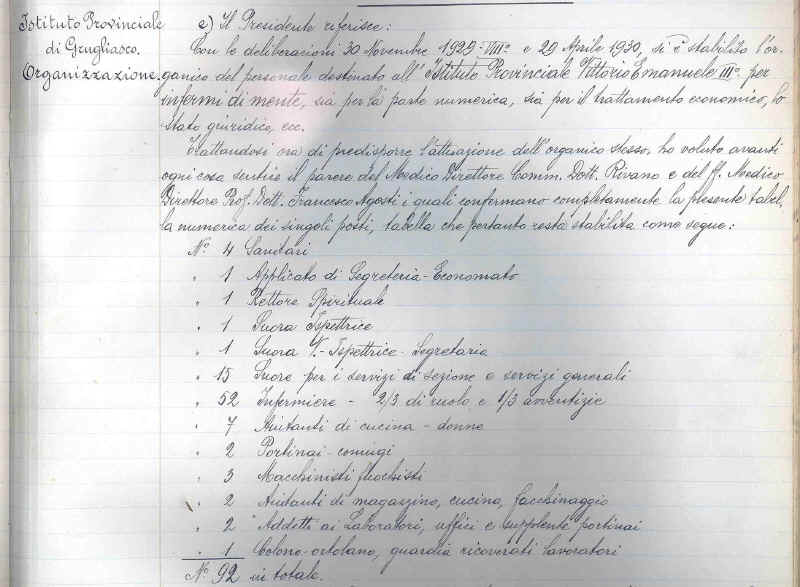 Istituto Provinciale
di Grugliasco.
Organizzazione.
e) Il Presidente riferisce:
Con le deliberazioni 30 Novembre 1929-VIIIº e 29 Aprile 1930, si è stabilito l'or-
ganico del personale destinato all'Istituto Provinciale Vittorio Emanuele IIIº per
infermi di mente, sia per la parte numerica, sia per il trattamento economico, lo
stato giuridico, ecc.
Trattandosi ora di predisporre l'attuazione dell'organico stesso, ho voluto avanti
ogni cosa sentire il parere del Medico Direttore Comm. Dott. Rivano e del ff. Medico
Direttore Prof. Dott. Francesco Agosti i quali confermano completamente la presente tabel-
la numerica dei singoli posti, tabella che pertanto resta stabilita come segue:
Nº 4 Sanitari
" 1 Applicato di Segreteria-Economato
" 1 Rettore Spirituale
" 1 Suora Ispettrice
" 1 Suora V.-Ispettrice-Segretaria
" 15 Suore per i servizi di sezione e servizi generali
" 52 Infermiere - 2/3 di ruolo e 1/3 avventizie
" 7 Aiutanti di cucina - donne
" 2 Portinai-coniugi
" 3 Macchinisti fuochisti
" 2 Aiutanti di magazzino, cucina, facchinaggio
" 2 Addetti ai Laboratori, uffici e supplente portinai
" 1 Colono-ortolano, guardia ricoverati lavoratori
Nº 92 in totale.